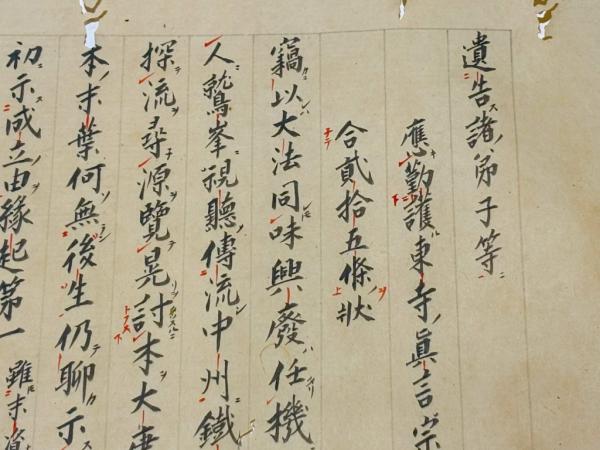 遺告諸弟子等
應勤護東寺眞言宗
合貳拾五條狀
竊以大法同味興廢任機
人鷲峯視聽傳流中州鐵
探流尋源覽晃討本大唐
本末葉何無後生仍聊示
初示成立由緣起第一 雖末資